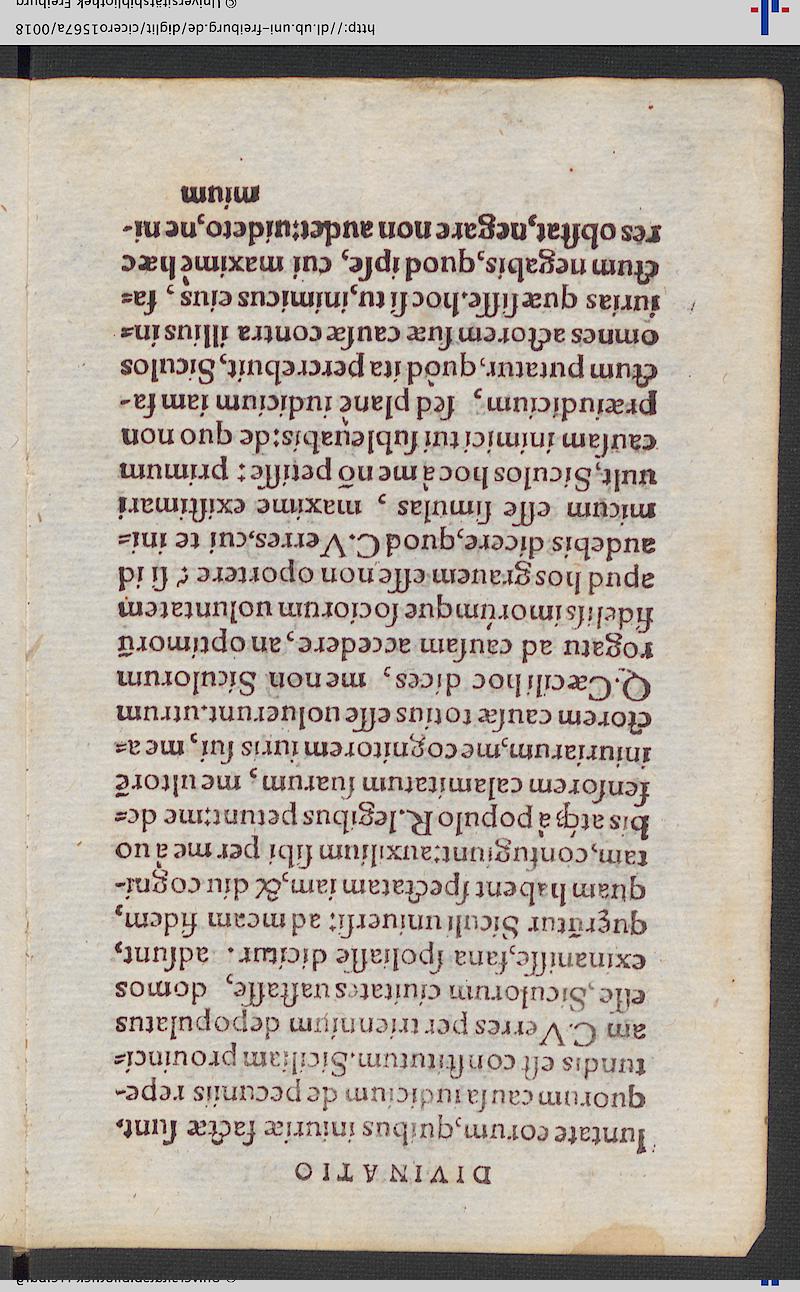 DIVINATIO
luntate eorum, quibus iniuriæ factæ sunt,
quorum causa iudicium de pecuniis repe-
tundis est constitutum. Siciliam provinci=
am C. Verres per triennium depopulatus
esse, Siculorum ciuitates uastasse, domos
exinanisse, fana spoliasse dicitur. adsunt,
quęrūtur Siculi uniuersi: ad meam fidem,
quam habent spectatam iam, & diu cogni-
tam, confugiunt: auxilium sibi per me à uo
bis atq́; à populo R. legibus petunt: me de=
fensorem calamitatum suarum, me ultorē
iniuriarum, me cognitorem iuris sui, me a=
ctorem causæ totius esse uoluerunt. utrum
Q. Cæcili hoc dices, me non Siculorum
rogatu ad causam accedere, an optimorū
fidelissimorúmque sociorum uoluntatem
apud hos grauem esse non oportere? si id
audebis dicere, quod C. Verres, cui te ini=
micum esse simulas, maxime existimari
uult, Siculos hoc à me nō petisse: primum
causam inimici tui subleuabis: de quo non
præiudicium, sed planè iudicium iam fa-
ctum putatur, quòd ita percrebuit, Siculos
omnes actorem suæ causæ contra illius in=
iurias quæsisse. hoc si tu, inimicus eius, fa=
ctum negabis, quod ipse, cui maximè hæc
res obstat, negare non audet: uideto, ne ni-
mium
http://dl.ub.uni-freiburg.de/diglit/cicero1567a/0018
© Universitätsbibliothek Freiburg